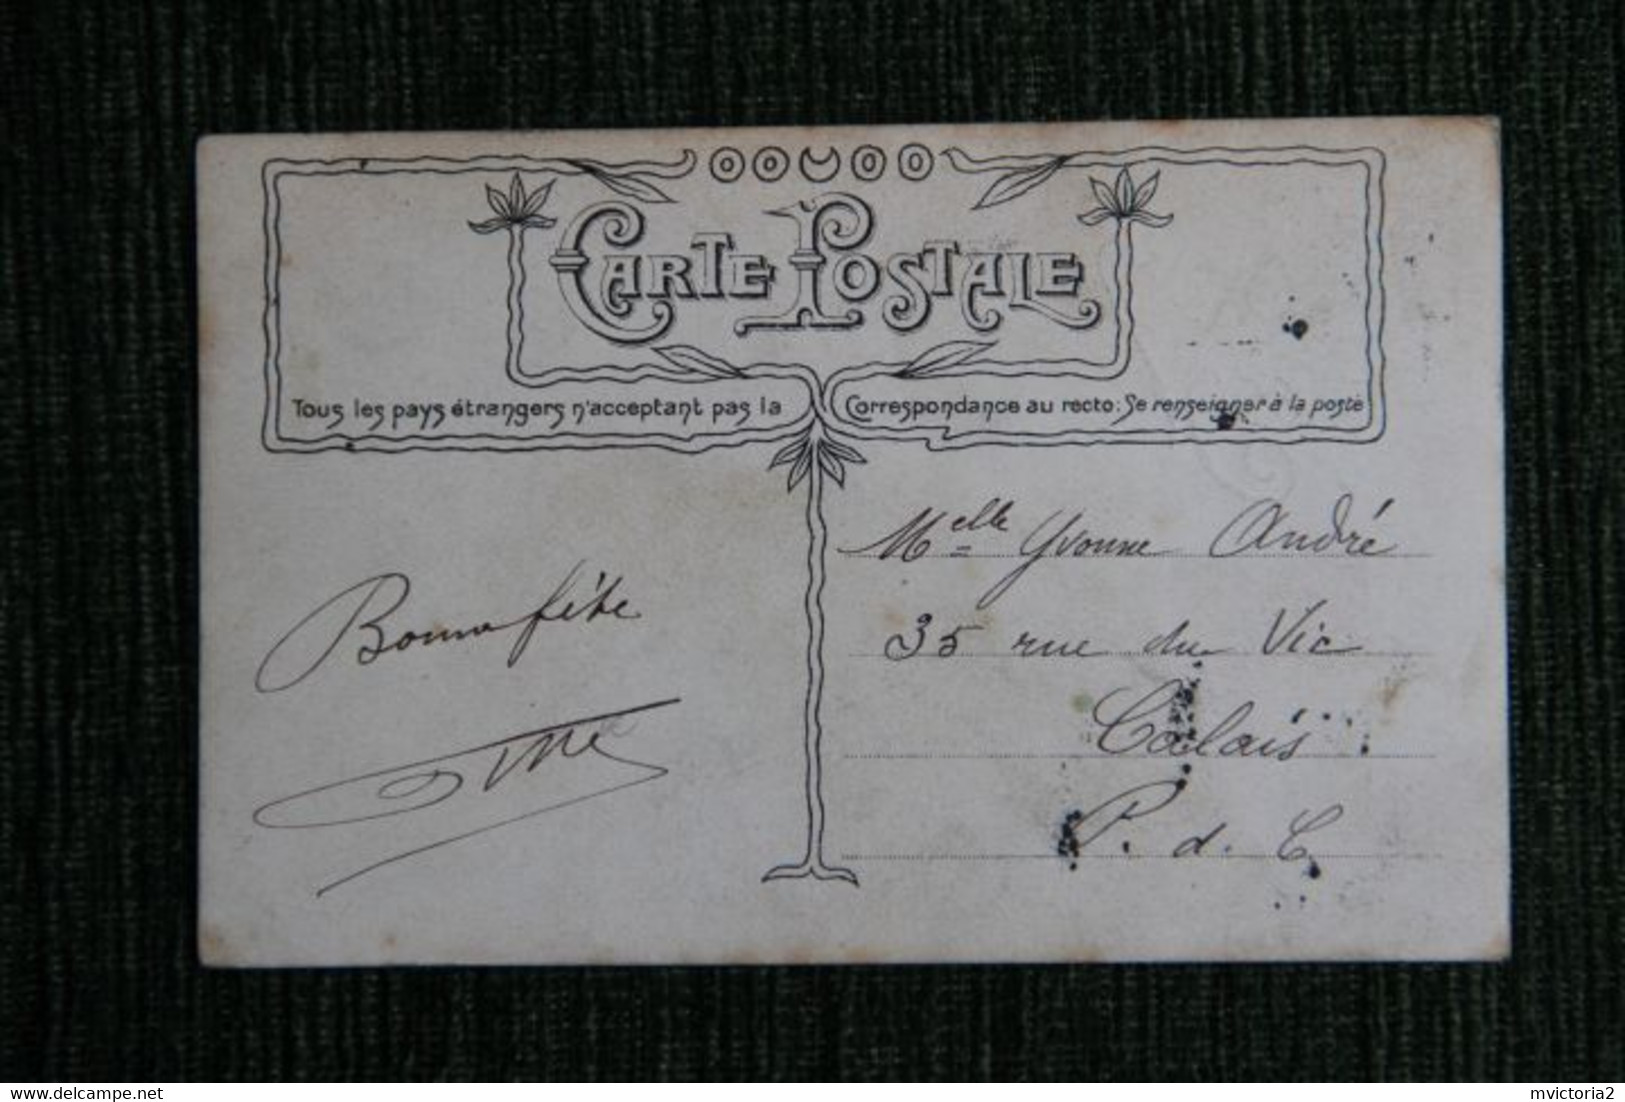 CARTE POSTALE
Tous les pays étrangers n'acceptant pas la Correspondance au recto: Se renseigner à la poste
Bonne fête
Melle Yvonne André
35 rue du Vic
Calais
P. d. C
mvictoria2